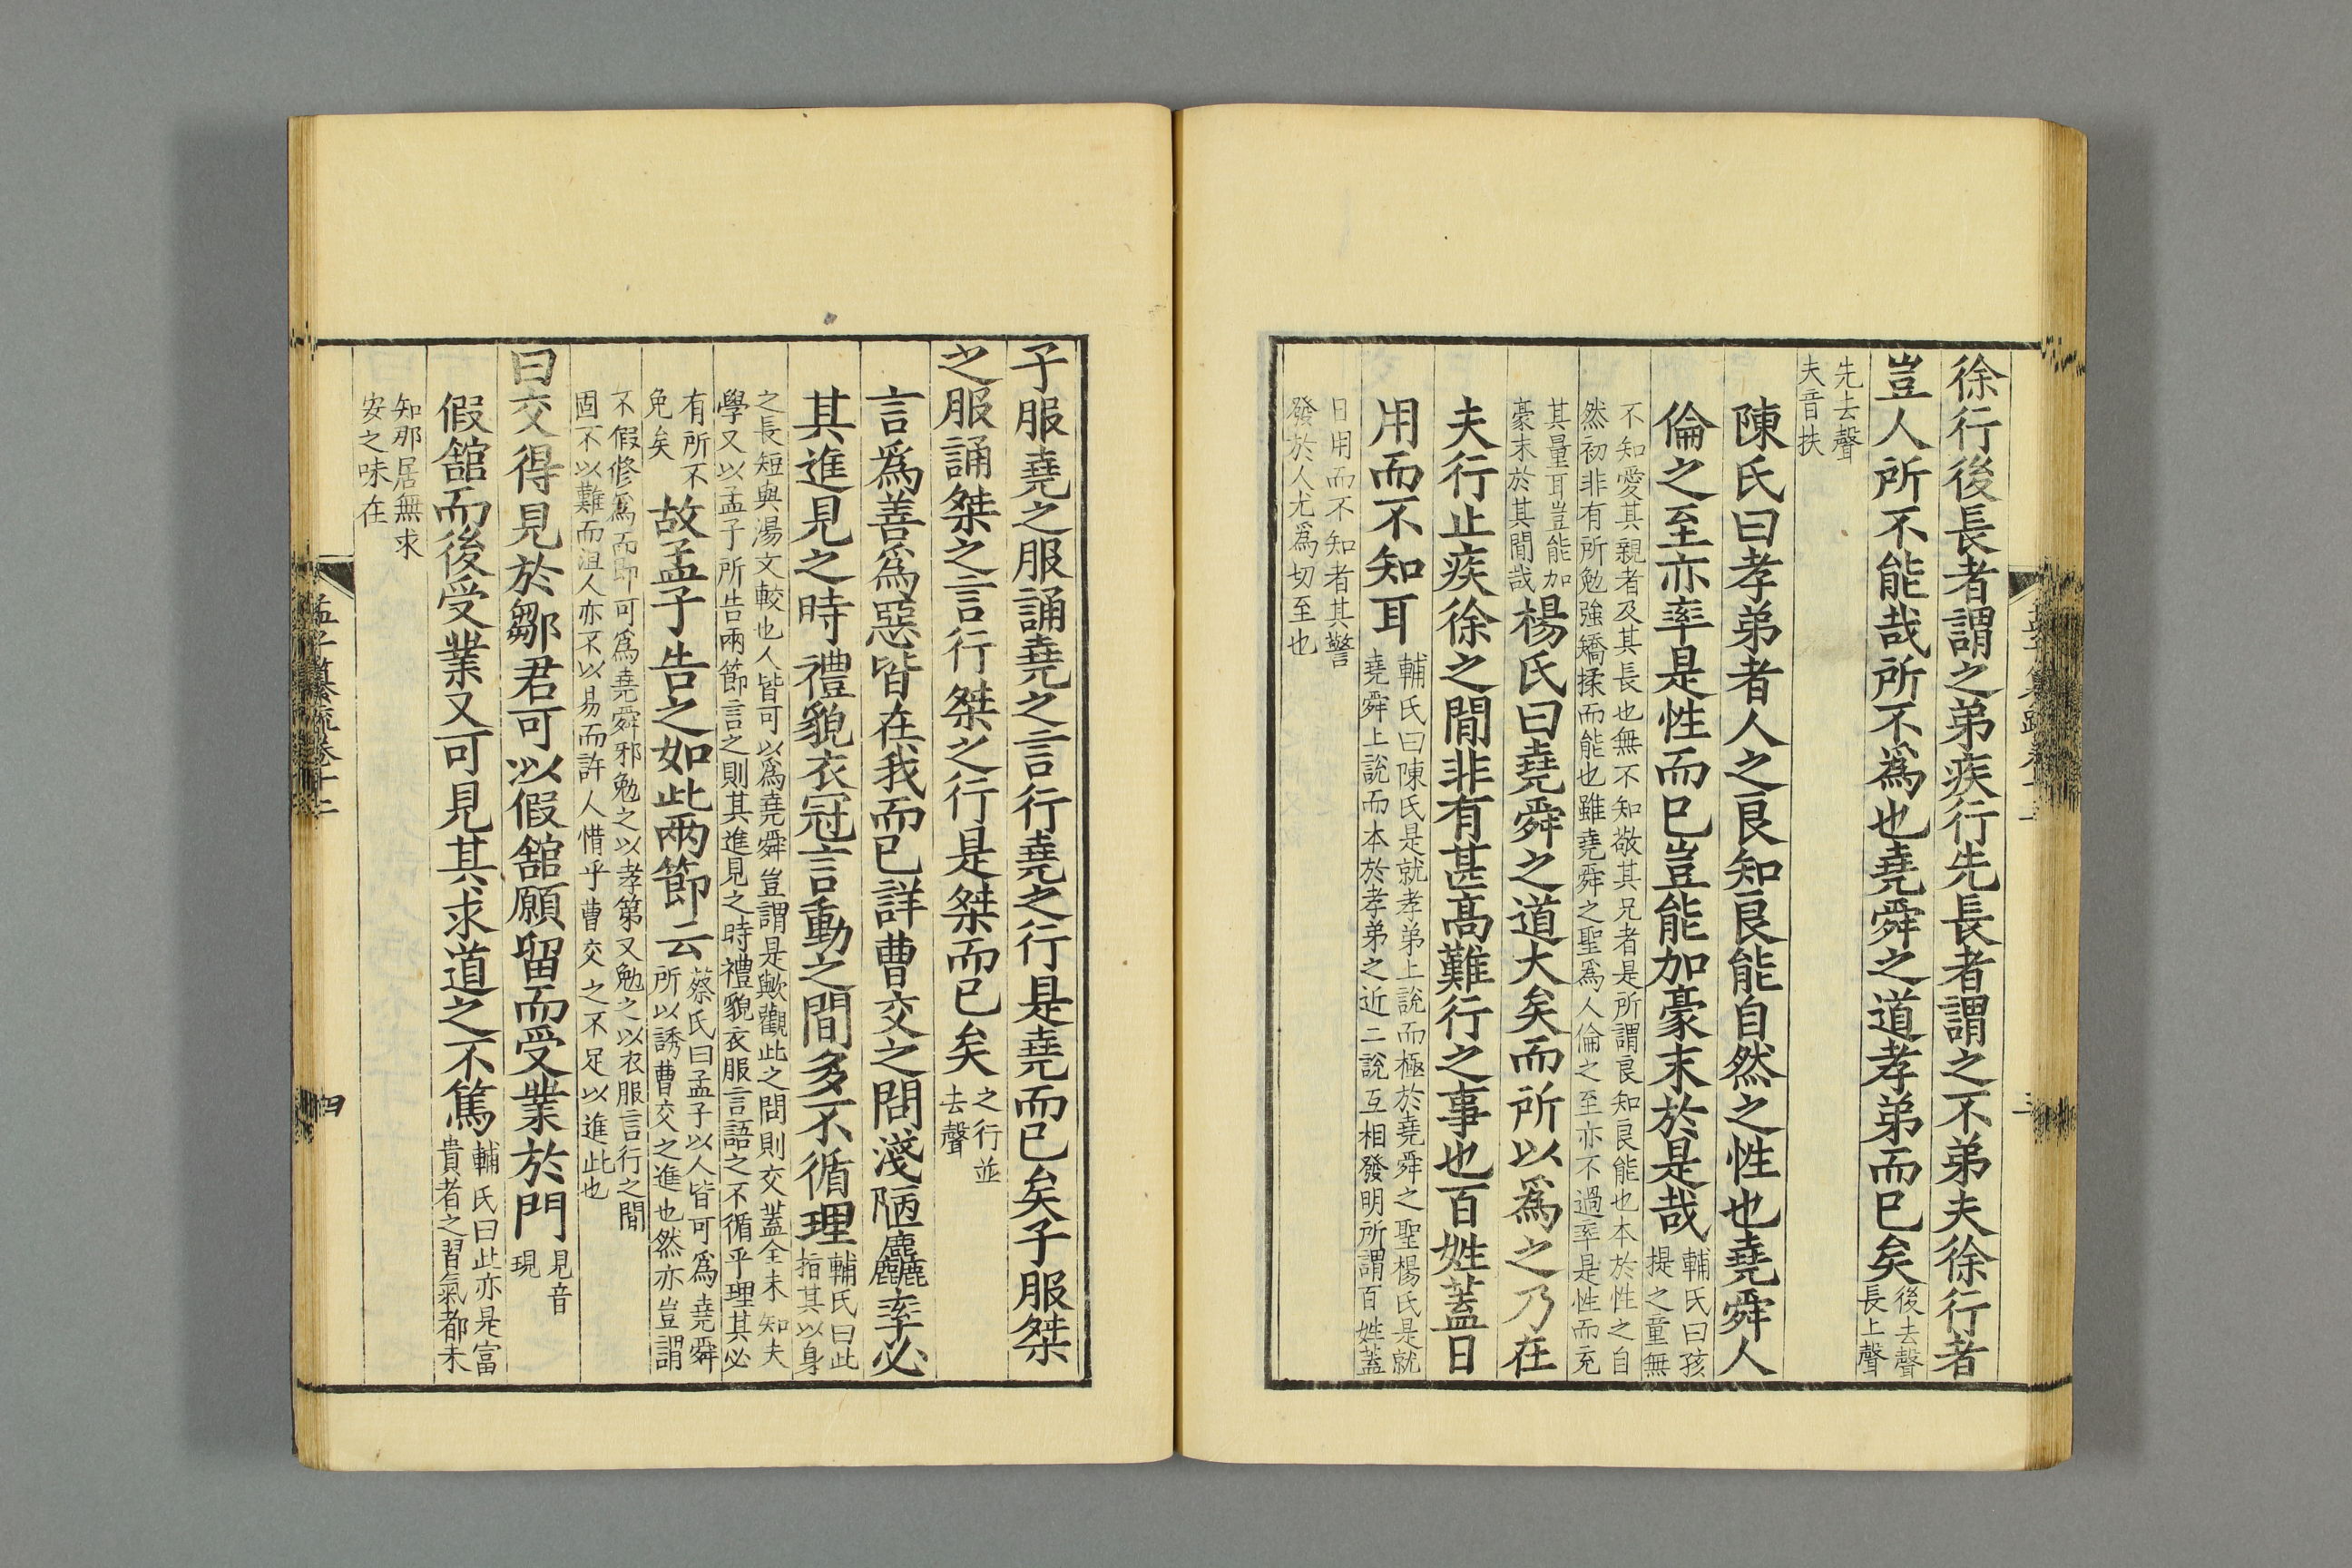 徐行後長者謂之弟疾行先長者謂之不弟夫徐行者
豈人所不能哉所不爲也堯舜之道孝弟而已矣
後去聲
長上聲
先去聲
夫音扶
陳氏曰孝弟者人之良知良能自然之性也堯舜人
倫之至亦率是性而已豈能加豪末於是哉
輔氏曰孩
提之童無
不知愛其親者及其長也無不知敬其兄者是所謂良知良能也本於性之自
然初非有所勉強矯揉而能也雖堯舜之聖爲人倫之至亦不過率是性而充
其量耳豈能加
豪末於其間哉
楊氏曰堯舜之道大矣而所以爲之乃在
夫行止疾徐之間非有甚高難行之事也百姓蓋日
用而不知耳
輔氏曰陳氏是就孝弟上說而極於堯舜之聖楊氏是就
堯舜上說而本於孝弟之近二說互相發明所謂百姓蓋
日用而不知者其警
發於人尤爲切至也
子服堯之服誦堯之言行堯之行是堯而已矣子服桀
之服誦桀之言行桀之行是桀而已矣
之行並
去聲
言爲善爲惡皆在我而已詳曹交之問淺陋麤率必
其進見之時禮貌衣冠言動之間多不循理
輔氏曰此
指其以身
之長短與湯文較也人皆可以爲堯舜豈謂是歟觀此之問則交蓋全未知夫
學又以孟子所告兩節言之則其進見之時禮貌衣服言語之不循乎理其必
有所不
免矣
故孟子告之如此兩節云
蔡氏曰孟子以人皆可爲堯舜
所以誘曹交之進也然亦豈謂
不假修爲而即可爲堯舜邪勉之以孝第又勉之以衣服言行之間
固不以難而沮人亦不以易而許人惜乎曹交之不足以進此也
曰交得見於鄒君可以假舘願留而受業於門
見音
現
假舘而後受業又可見其求道之不篤
輔氏曰此亦是富
貴者之習氣都未
知那居無求
安之味在
孟子纂疏卷十二
四